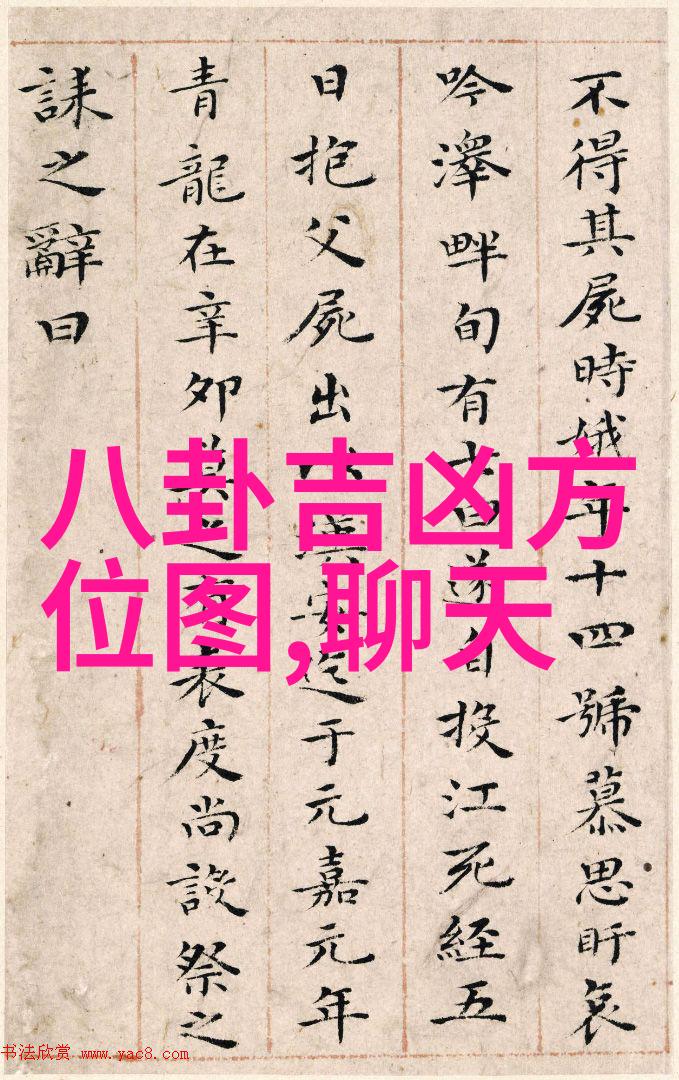 不得其屍時娥年十四號慕思盱哀
吟澤畔旬有七日遂自投江死經五
日抱父屍出以漢安迄于元嘉元年
青龍在辛卯莫之有表度尚設祭之
誄之辭曰
八卦吉凶方
位图,聊天
书法欣赏 www.yac8.com